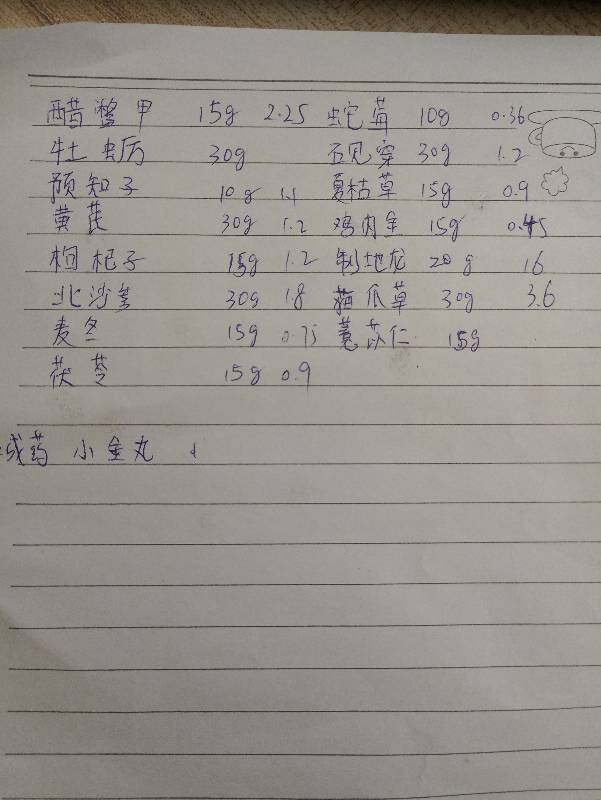 醋鳖甲 15g 2.25 蛇莓 10g 0.36
牡蛎 30g 石见穿 30g 1.2
预知子 10g 1.1 夏枯草 15g 0.9
黄芪 30g 1.2 鸡内金 15g 0.45
枸杞子 15g 1.2 制地龙 20g 16
北沙参 30g 1.8 猫爪草 30g 3.6
麦冬 15g 0.75 薏苡仁 15g
茯苓 15g 0.9
成药 小金丸